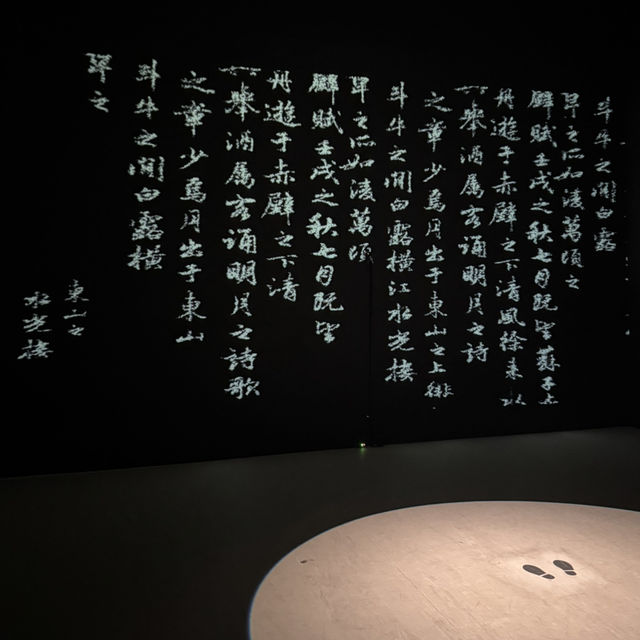 斗牛之間白露
葦之所如凌萬頃之
壁賦壬戌之秋七月既望蘇子與
舟遊于赤壁之下清風徐来
舉酒屬客誦明月之詩
之章少焉月出于東山之上徘
斗牛之間白露橫江水光接
葦之所如凌萬頃
壁賦壬戌之秋七月既望
舟遊于赤壁之下清
舉酒屬客誦明月之詩歌
之章少焉月出于東山
斗牛之間白露橫
葦之
東山之
水光接